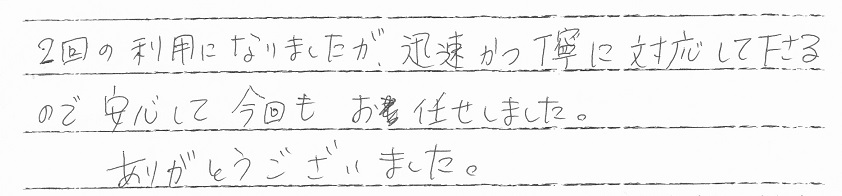 2回の利用になりましたが、迅速かつ丁寧に対応して下さる
ので安心して今回もお任せしました。
ありがとうございました。